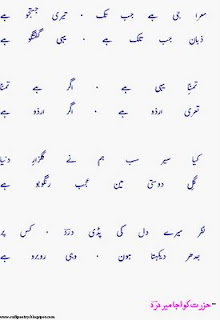 مرا جی ہے جب تک ۔ تیری جستجو ہے
ذبان جب تلک ہے ۔ یہی گفتگو ہے
تمنّا یہی ہے ۔ اگر ہے تمنّا
تعری اردو ہے ۔ اگر اردو ہے
کیا سیر سب ہم نے گلزارِ دنیا
گلِ دوستی مین عجب رنگوبو ہے
نظر میرے دل کی پڈی دردؔ ۔ کس پر
جدھر دیکہتا ہون ۔ وہی روبرو ہے
-حزرت کواجا میر دردؔ
www.sufipoetry.blogspot.com